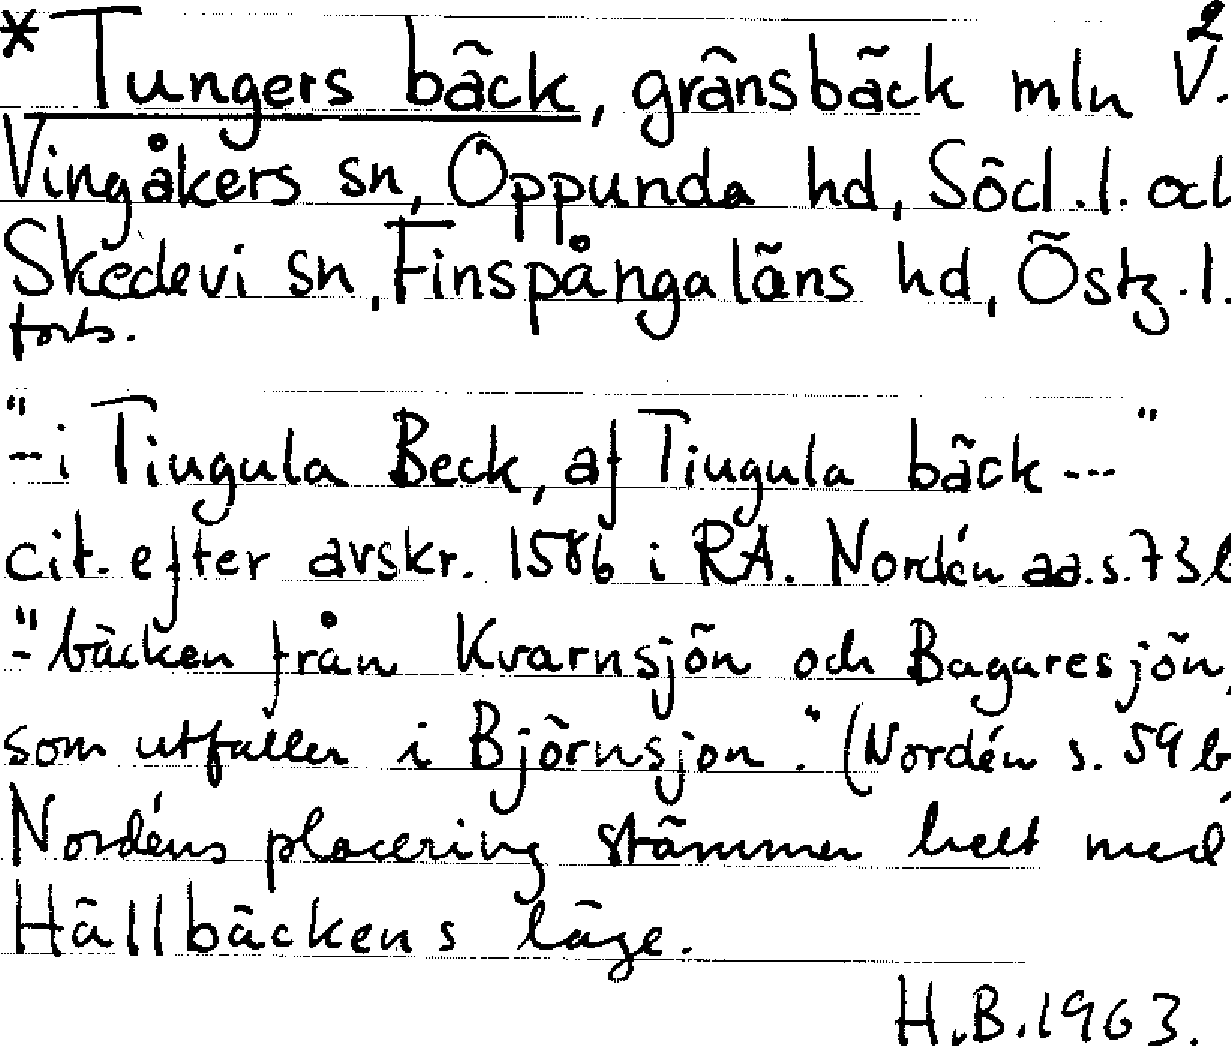 2
*Tungers bäck, gränsbäck mln V.
Vingåkers sn, Oppunda hd, Söd.l. och
Skedevi sn, Finspångaläns hd, Östg.l.
forts.
"--i Tiugula Beck, af Tiugula bäck ---"
cit. efter avskr. 1586 i RA. Nordén aa.s.73b
"- bäcken från Kvarnsjön och Bagaresjön,
som utfaller i Björnsjon." (Nordén s. 59b
Nordéns placering stämmer helt med
Hällbäckens läge.
H.B.1963.